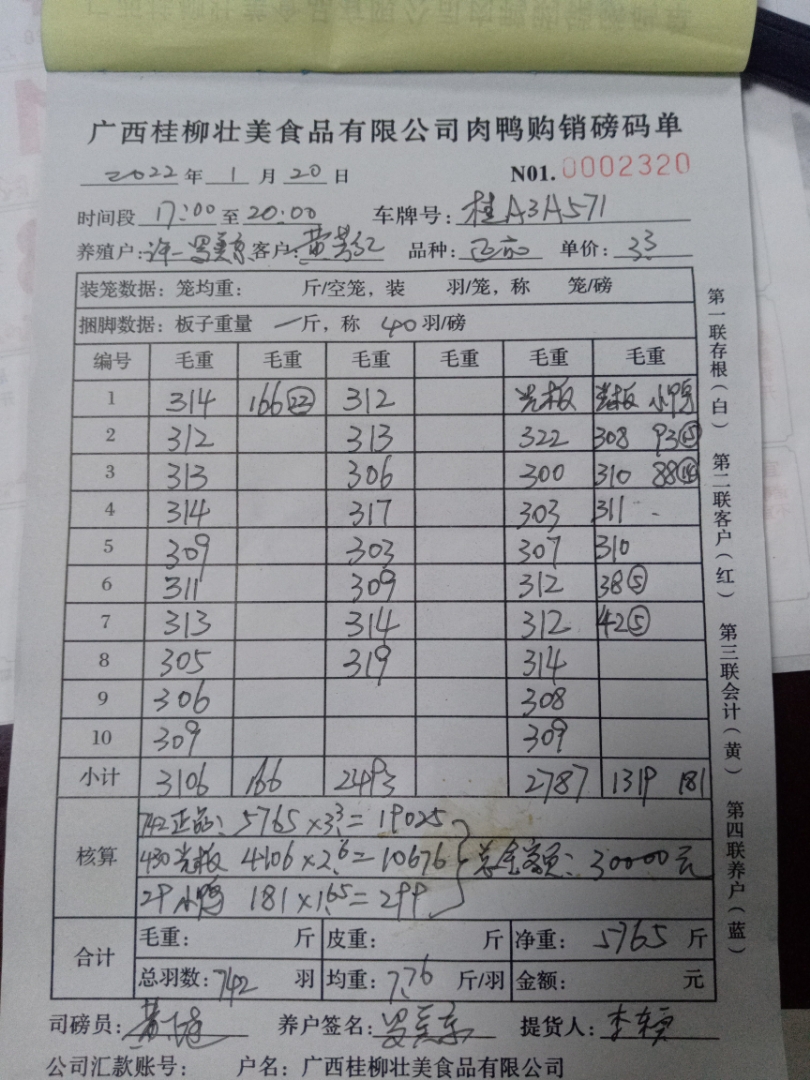 广西桂柳壮美食品有限公司肉鸭购销磅码单
2022年1月20日 N01. 0002320
时间段 17:00至20:00 车牌号:桂A3A571
养殖户: 客户: 品种:正品 单价:3.3
装笼数据:笼均重: 斤/空笼,装 羽/笼,称 笼/磅
捆脚数据:板子重量 一斤,称 40羽/磅
编号 毛重 毛重 毛重 毛重 毛重 毛重
1 314 166㉒ 312 光板 光板 小鸭
2 312 313 322 308 93⑮
3 313 306 300 310 88⑭
4 314 317 303 311
5 309 303 307 310
6 311 309 312 38⑤
7 313 314 312 42⑤
8 305 319 314
9 306 308
10 309 309
小计 3106 166 2493 2787 1319 181
核算
742正品:5765×3.3=19025
430光板 4106×2.6=10676 总金额:30000元
29小鸭 181×1.65=299
合计
毛重: 斤 皮重: 斤 净重:5765斤
总羽数:742羽 均重:7.76斤/羽 金额: 元
司磅员: 养户签名: 提货人:
公司汇款账号: 户名:广西桂柳壮美食品有限公司
第一联存根(白) 第二联客户(红) 第三联会计(黄) 第四联养户(蓝)